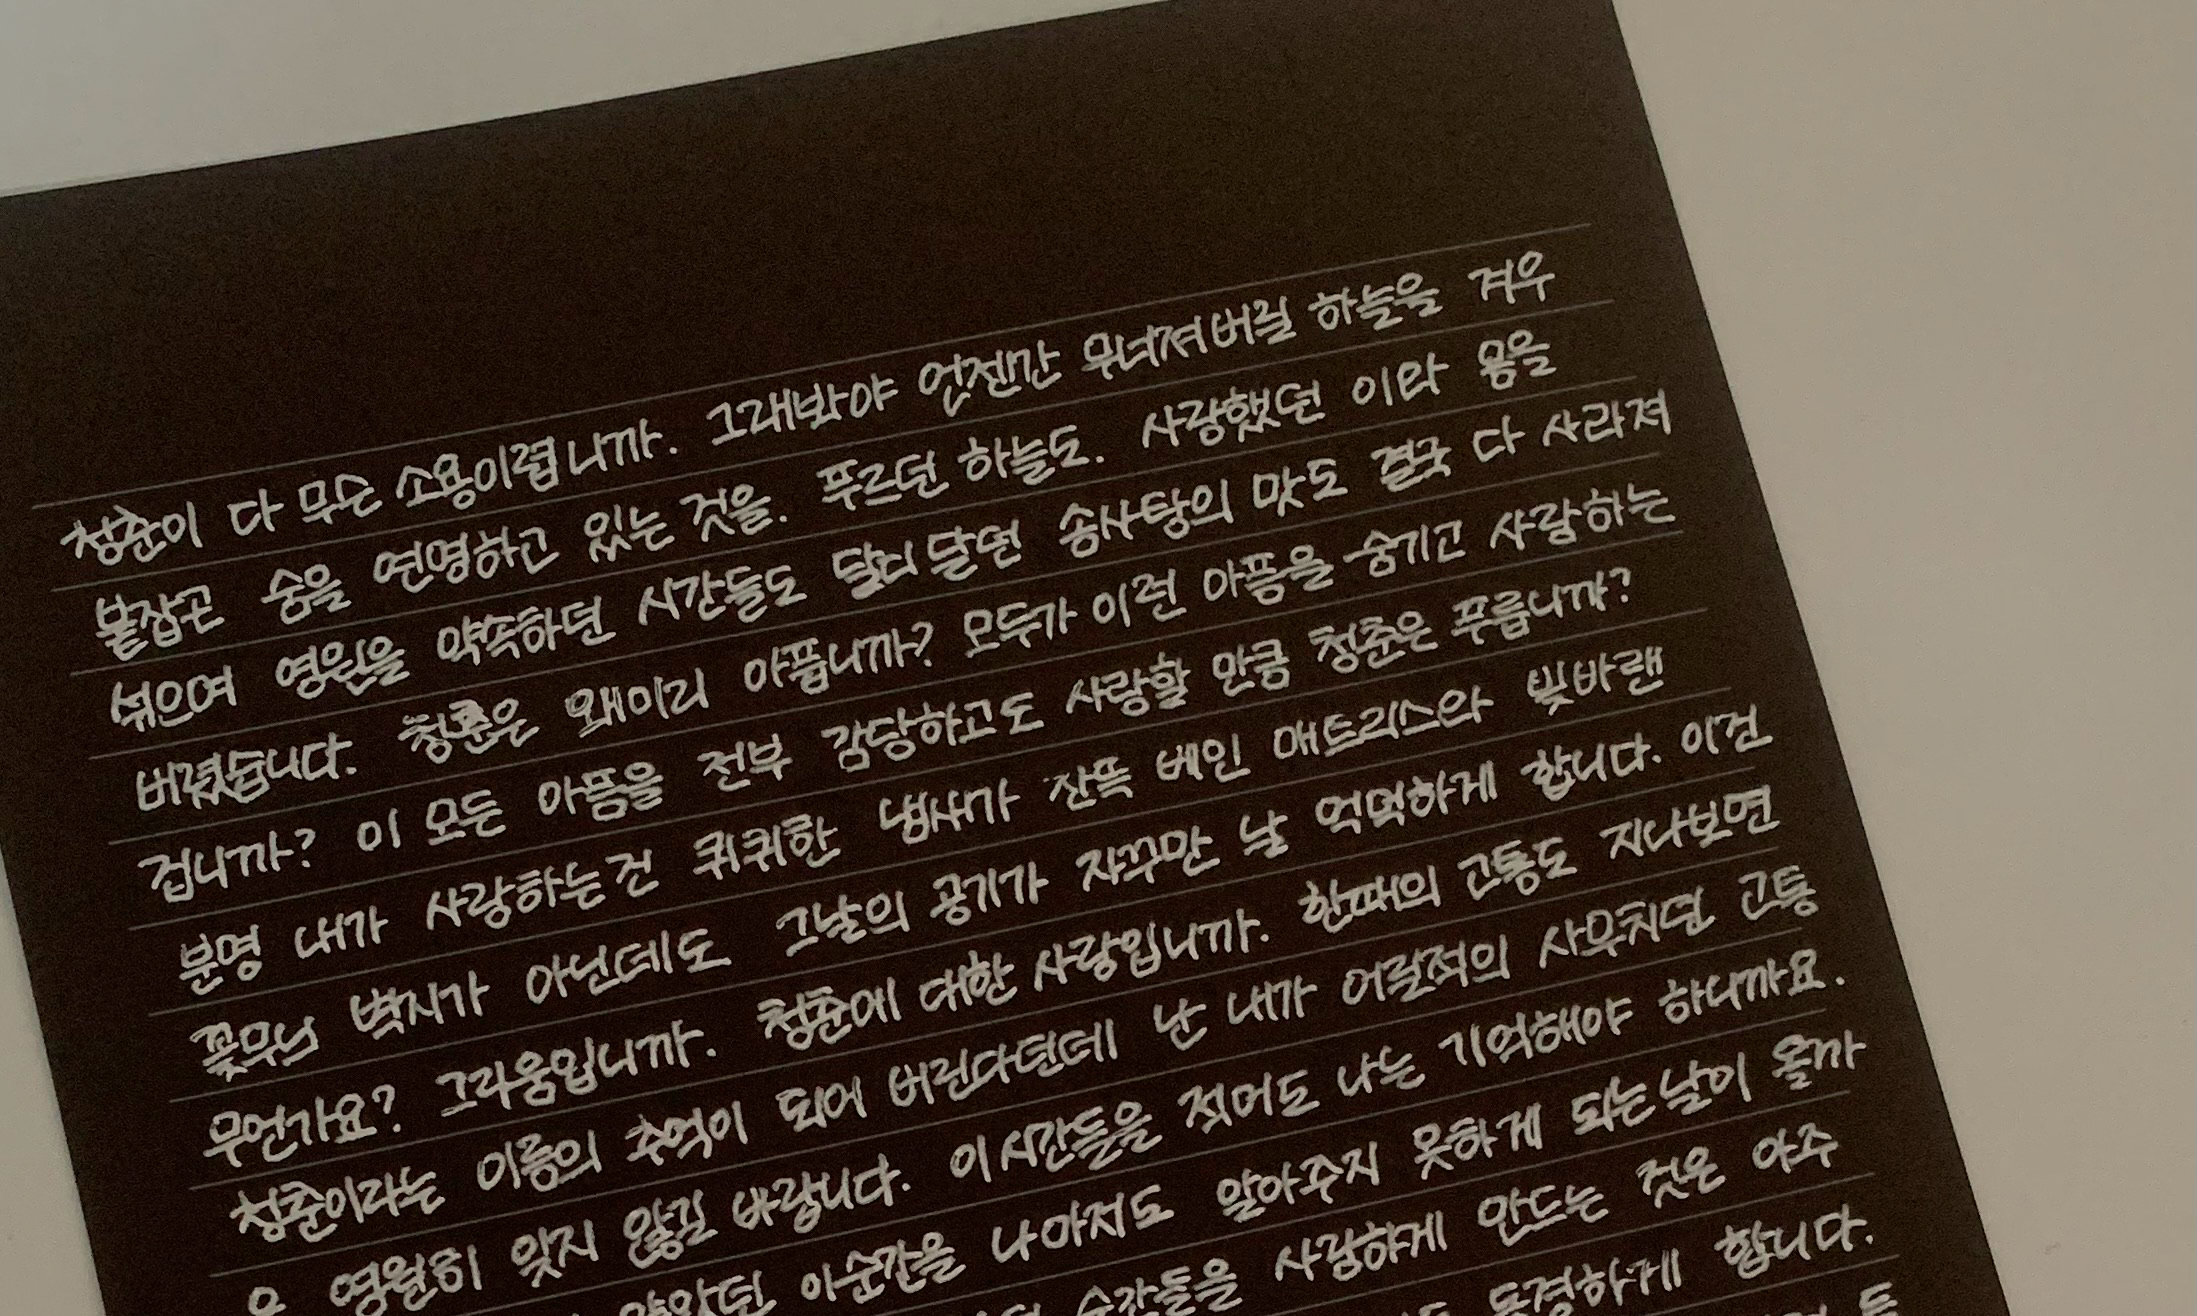 청춘이 다 무슨 소용이렵니까. 그래봐야 언젠간 무너져버릴 하늘을 겨우
붙잡곤 숨을 연명하고 있는 것을. 푸르던 하늘도. 사랑했던 이와 몸을
섞으며 영원을 약속하던 시간들도 달디달던 솜사탕의 맛도 결국 다 사라져
버렸습니다. 청춘은 왜이리 아픕니까? 모두가 이런 아픔을 숨기고 사랑하는
겁니까? 이 모든 아픔을 전부 감당하고도 사랑할 만큼 청춘은 푸릅니까?
분명 내가 사랑하는건 퀴퀴한 냄새가 잔뜩 베인 매트리스와 빛바랜
꽃무늬 벽지가 아닌데도 그날의 공기가 자꾸만 날 먹먹하게 합니다. 이건
무언가요? 그리움입니까. 청춘에 대한 사랑입니까. 한때의 고통도 지나보면
청춘이라는 이름의 추억이 되어 버린다던데 난 내가 어릴적의 사무치던 고통
은 영원히 잊지 않길 바랍니다. 이 시간들을 적어도 나는 기억해야 하니까요.
이순간을 나마저도 알아주지 못하게 되는날이 올까
순간들을 사랑하게 만드는 것은 아주
동경하게 합니다.